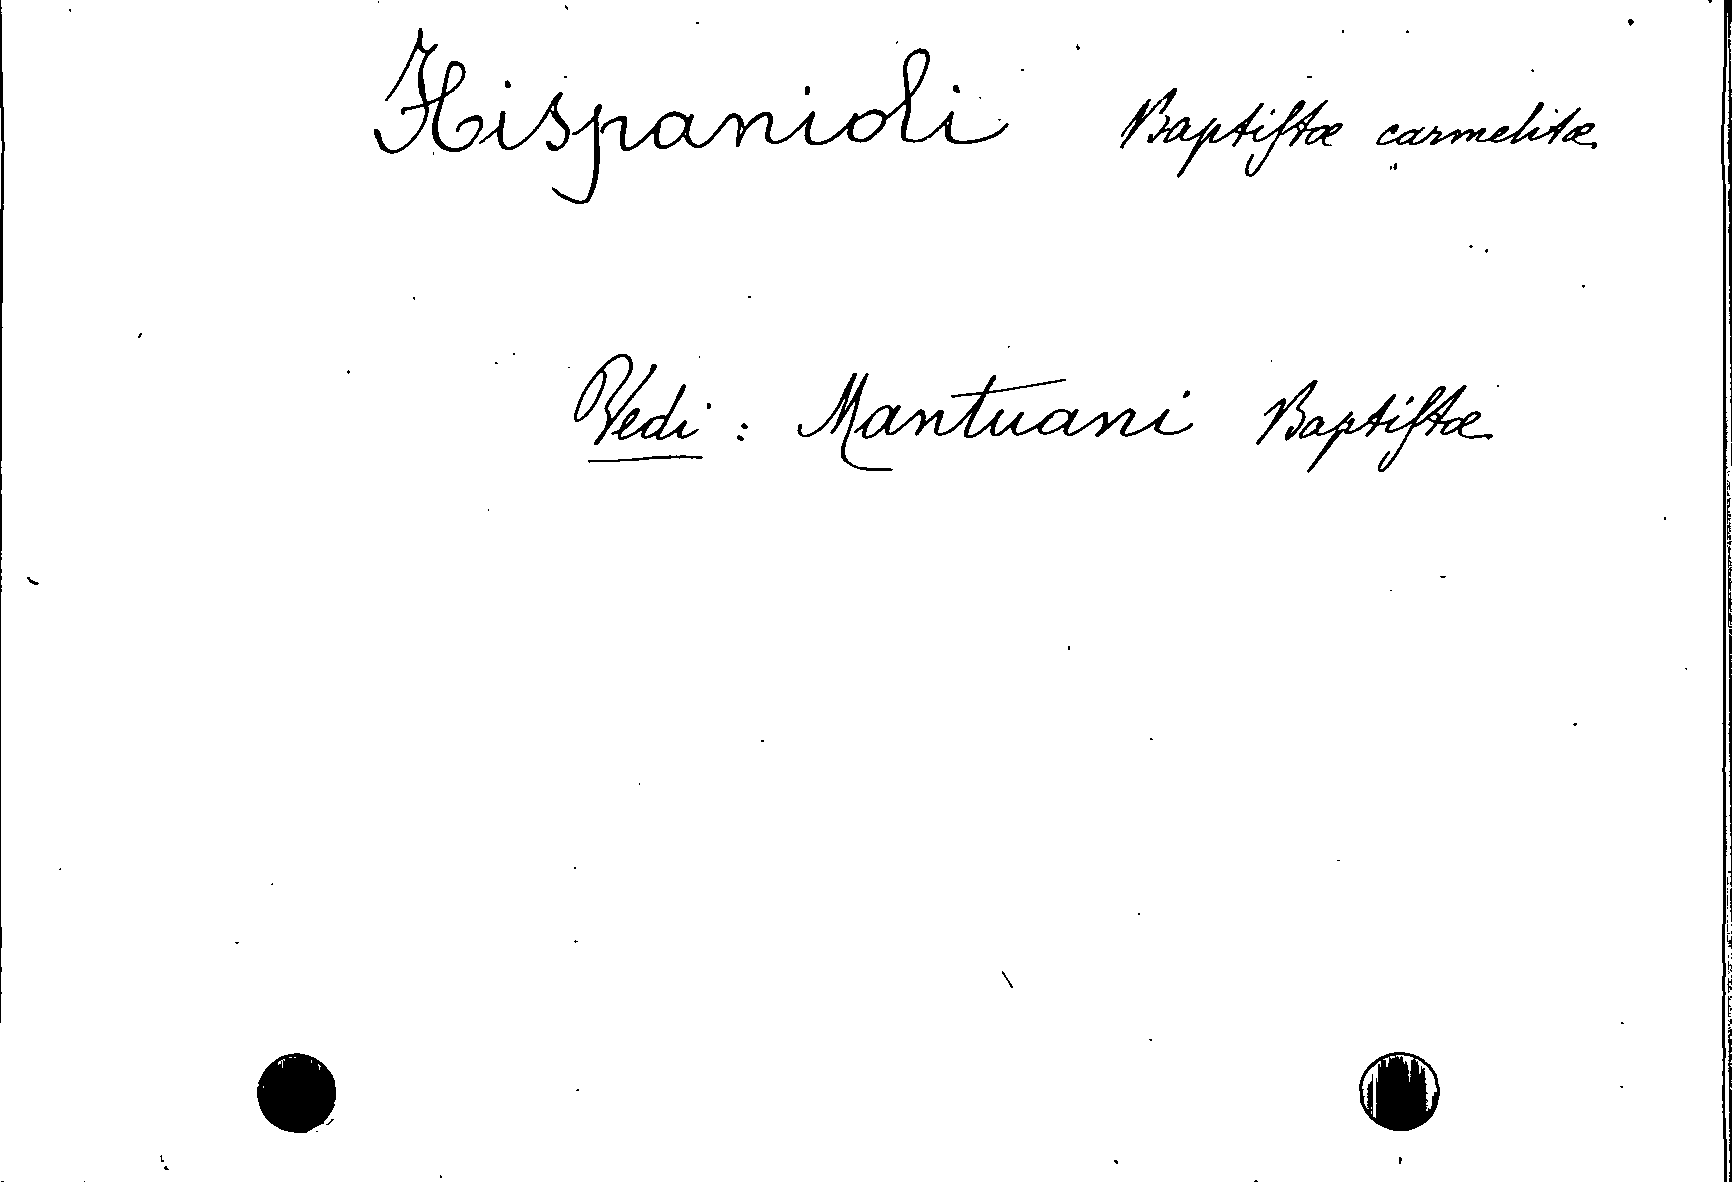 Hispanioli Baptiſtæ carmelitæ
Vedi : Mantuani Baptiſtæ